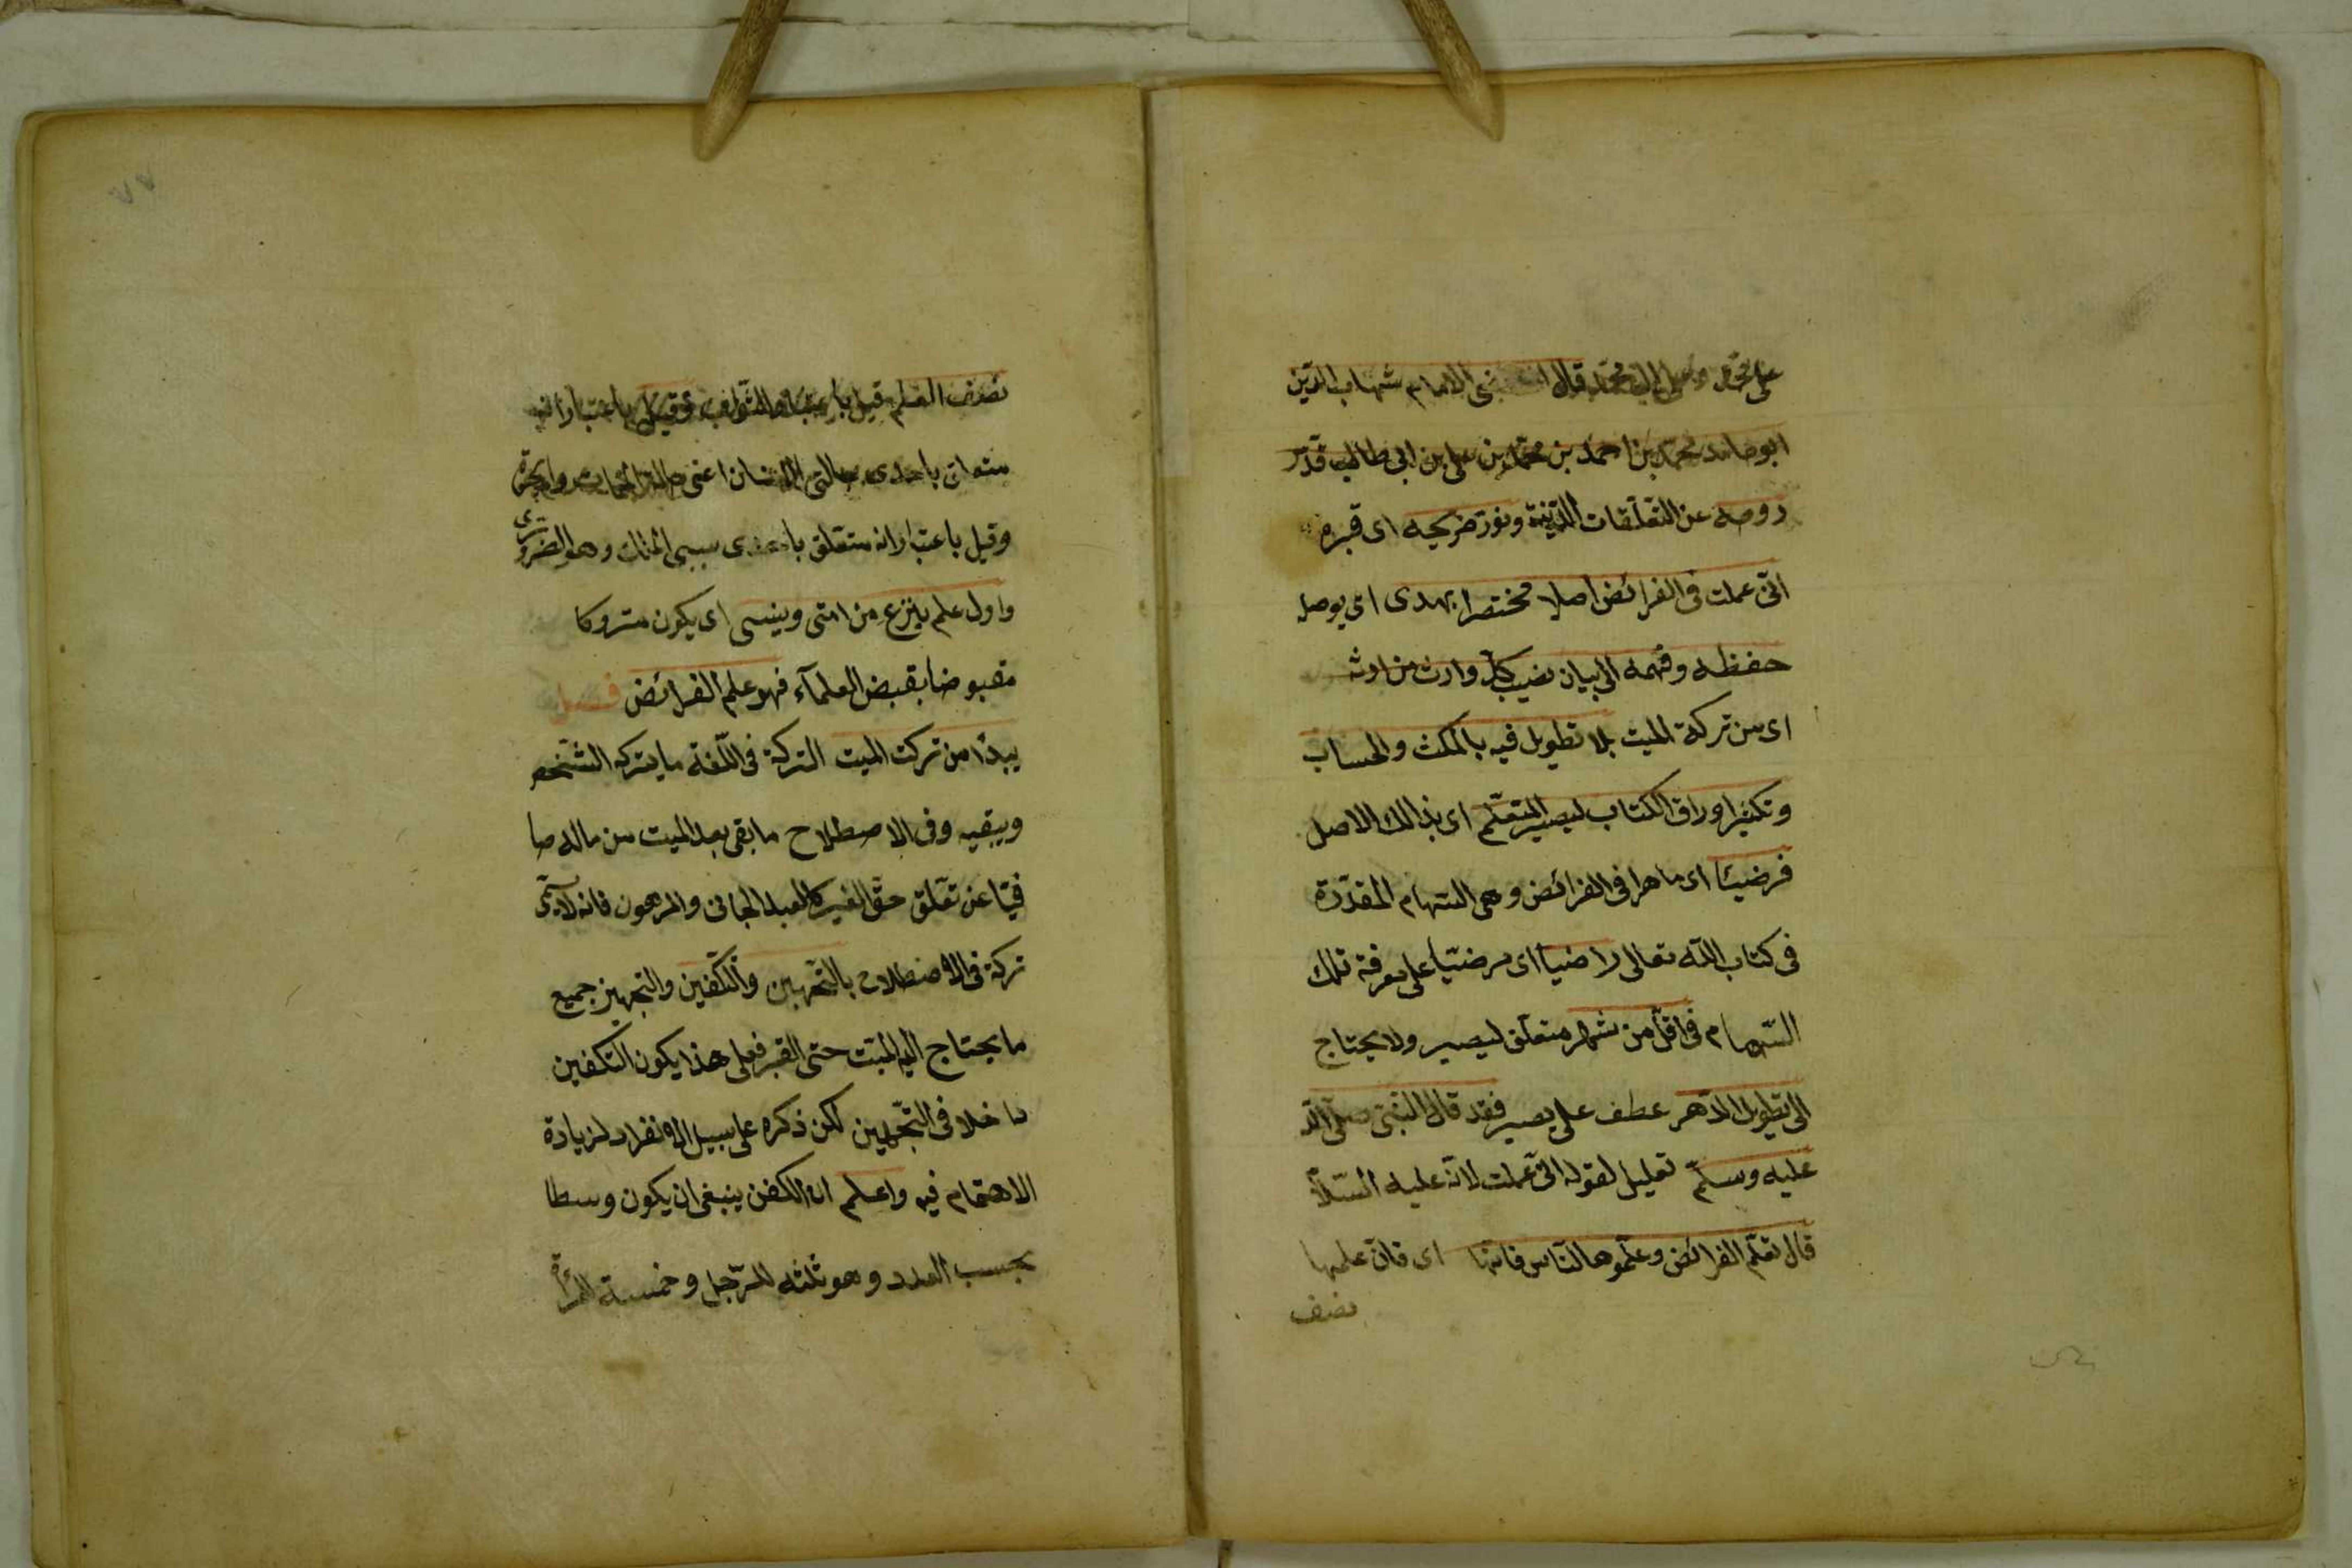 على محمد وعلى ال محمد قال الامام شهاب الدين
ابو حامد محمد بن احمد بن محمد بن على بن ابى طالب قدّس
روحه عن التعلقات الدنيّة ونوّر ضريحه اى قبره
انّى عملت فى الفرائض اصلا مختصرا يهدى اى يوصل
حفظه وفهمه الى بيان نصيب كلّ وارث من ارثه
اى من تركة الميت بلا تطويل فيه بالمكث والحساب
وتكثير اوراق الكتاب ليصير المتعلّم اى بذالك الاصل
فرضيّا اى ماهرا فى الفرائض وهى السّهام المقدّرة
فى كتاب اللّه تعالى راضيا اى مرضيّا على معرفة تلك
السّهام فى اقلّ من شهر متعلّق ليصير ولا يحتاج
الى تطويل الدّهر عطف على يصير فقد قال النّبىّ صلّى الله
عليه وسلّم تعليل لقوله انّى عملت لانّه عليه السّلا
قال تعلّم الفرائض وعلّموها النّاس فانّها اى فانّ علمها
نصف
نصف العلم قيل باعتبار الثواب وقيل باعتبار انه
متعلق باحدى حالتى الانسان اعنى حالة الممات
وقيل باعتبار انه متعلق باحدى سببى الملك وهو الضرورى
واول علم ينزع من امتى وينسى اى يكون متروكا
مقبوضا بقبض العلمآء فهو علم الفرائض فصل
يبدأ من تركت الميت التركة فى اللّغة ما يتركه الشّخص
ويبقيه وفى الاصطلاح ما بقى بعد الميت من ماله صا
فيّا عن تعلّق حقّ الغير كالعبد الجانى والمرهون فانه لا
تركة فى الاصطلاح بالتّجهيز والتّكفين والتجهيز جميع
ما يحتاج اليه الميّت حتى القبر فعلى هذا يكون التكفين
داخلا فى التّجهيز لكن ذكره على سبيل الانفراد لزيادة
الاهتمام فيه واعلم ان الكفن ينبغى ان يكون وسطا
بحسب العدد وهو ثلثه للرّجل وخمسة للمرأة